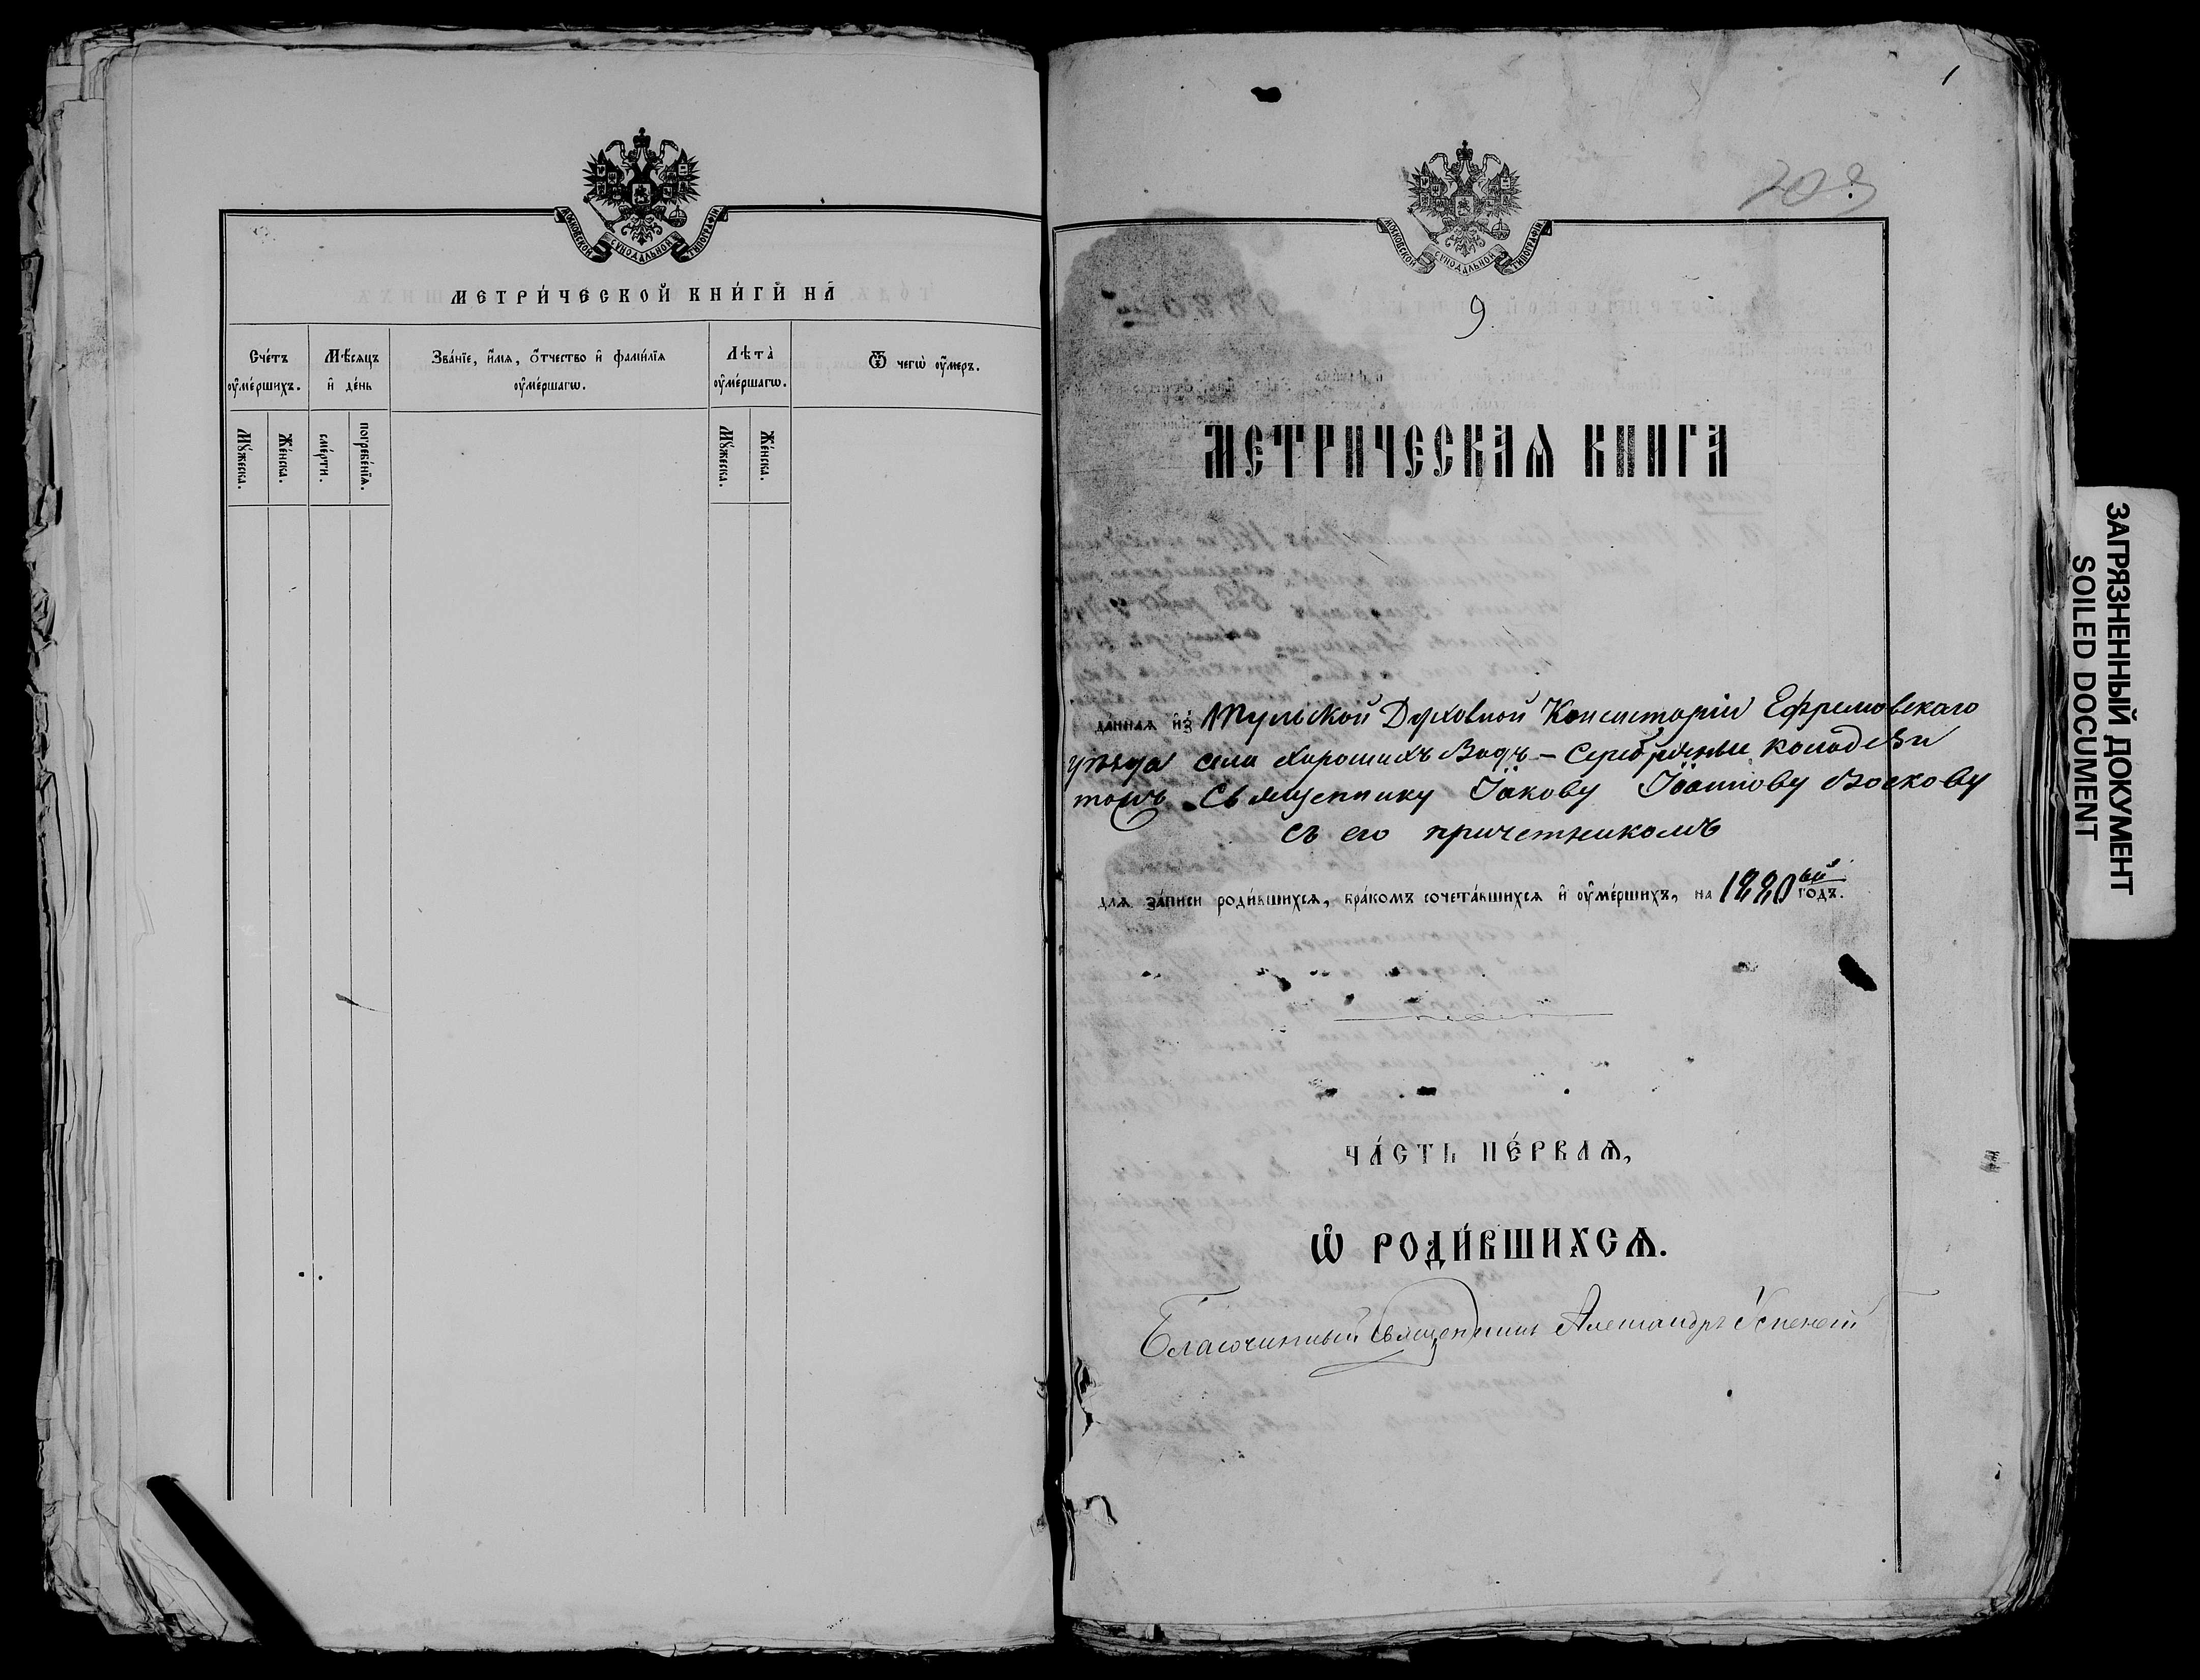 МОСКОВСКОЙ СѴНОДАЛЬНОЙ ТИПОГРАФІИ
МЕТРИ́ЧЕСКОЙ КНИ́ГИ НА
Сче́тъ оу҆ме́ршихъ.
Мѣ́сяцъ и҆ де́нь
Зва́нїе, и҆́мѧ, ѻ҆́тчество и҆ фами́лїѧ
оу҆ме́ршагѡ.
Лѣ́та̀ оу҆ме́ршагѡ.
Ѿ чегѡ̀ оу҆́меръ.
Мꙋ́жеска.
Же́нска.
сме́рти.
погребе́нїѧ.
Мꙋ́жеска.
Же́нска.
1
203
МОСКОВСКОЙ СѴНОДАЛЬНОЙ ТИПОГРАФІИ
9.
МЕТРИЧЕСКАѦ КНИГА
да́ннаѧ и҆з̾ Тульской Духовной Консисторіи Ефремовскаго
уѣзда села Хорошихъ Водъ – Серебряные колодези
тожъ Священнику Іакову Іоаннову Воскову
съ его причетникомъ
длѧ за́писи роди́вшихсѧ, бра́комъ сочета́вшихсѧ и҆ оу҆ме́ршихъ, на 1880ый го́дъ.
ЧА́СТЬ ПЕ́РВАѦ,
Ѡ҆ РОДИ́ВШИХСѦ.
Благочинный Священникъ Александръ Успенскій
ЗАГРЯЗНЕННЫЙ ДОКУМЕНТ
SOILED DOCUMENT